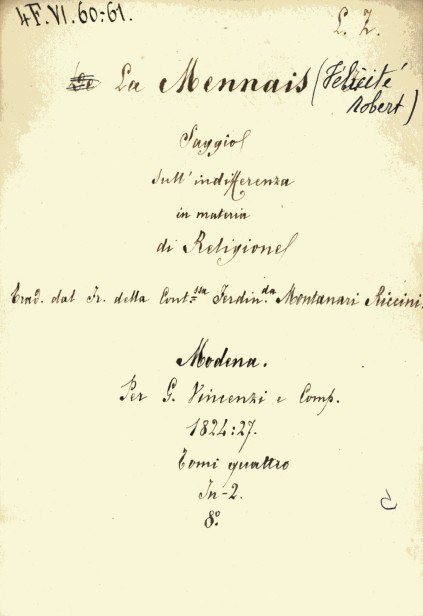 4F.VI.60-61.
L. Z.
La Mennais (Félicité Robert)
Saggio
sull' indifferenza
in materia
di Religione
Trad. dal Fr. della Cont.ssa Ferdin.da Montanari Riccini.
Modena.
Per G. Vincenzi e Comp.
1824:27.
Tomi quattro
In-2.
8º